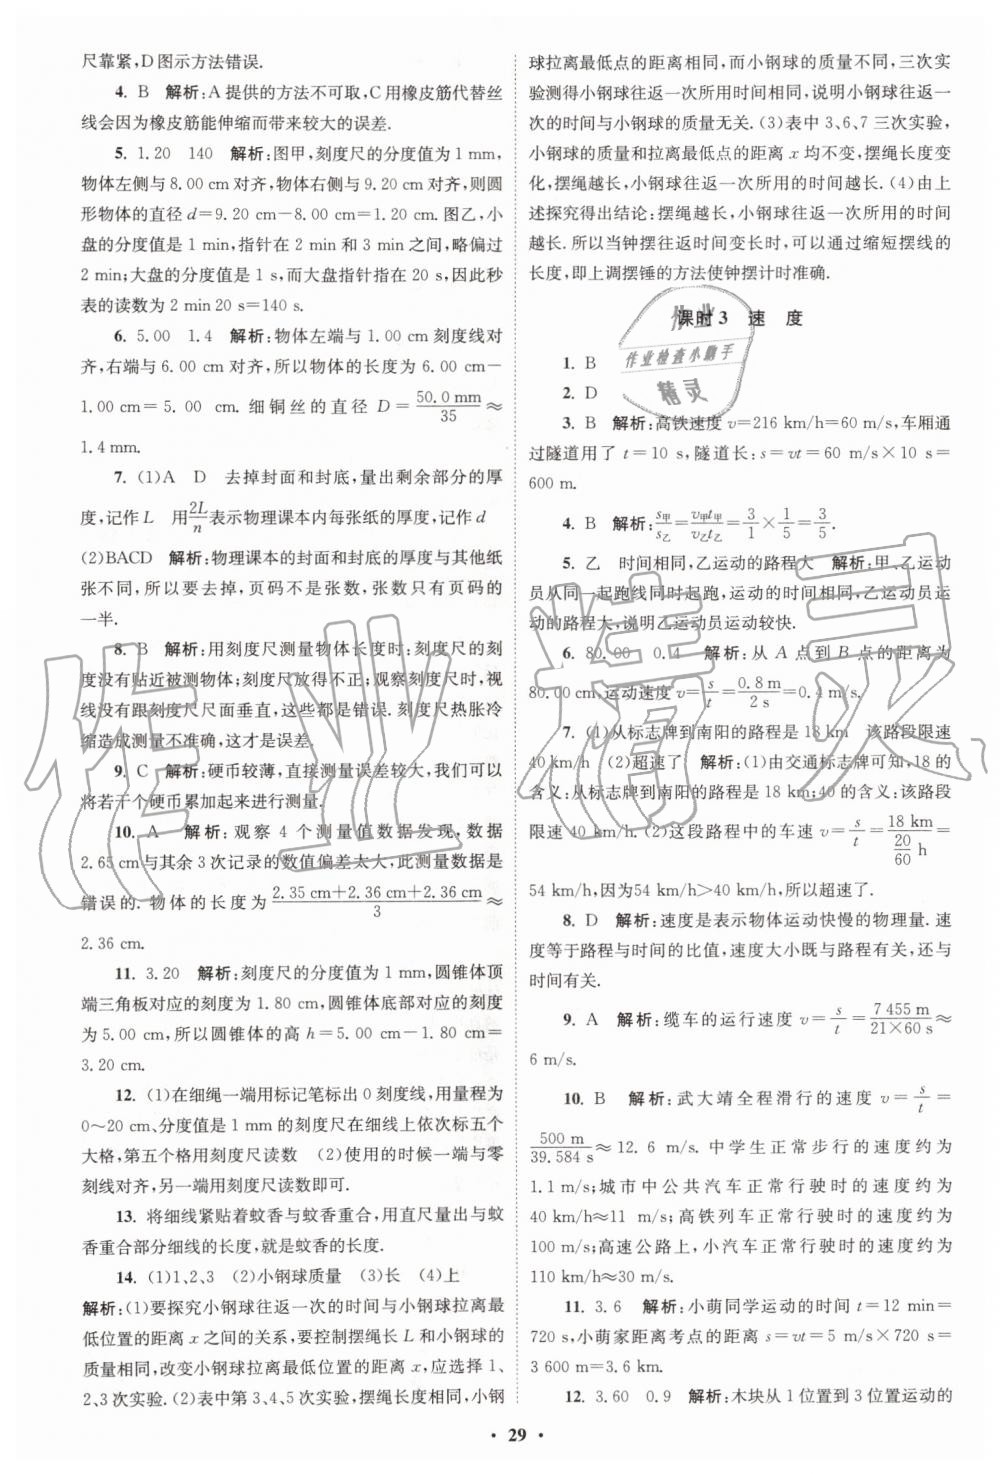 尺靠紧,D图示方法错误.
4. B 解析:A提供的方法不可取,C用橡皮筋代替丝
线会因为橡皮筋能伸缩而带来较大的误差.
5. 1.20 140 解析:图甲,刻度尺的分度值为1 mm,
物体左侧与8.00 cm对齐,物体右侧与9.20 cm对齐,则圆
形物体的直径d=9.20 cm-8.00 cm=1.20 cm. 图乙,小
盘的分度值是1 min,指针在2 min和3 min之间,略偏过
2 min;大盘的分度值是1 s,而大盘指针指在20 s,因此秒
表的读数为2 min 20 s=140 s.
6. 5.00 1.4 解析:物体左端与1.00 cm刻度线对
齐,右端与6.00 cm对齐,所以物体的长度为6.00 cm-
1.00 cm=5.00 cm. 细铜丝的直径D=50.0 mm/35≈
1.4 mm.
7. (1)A D 去掉封面和封底,量出剩余部分的厚
度,记作L 用2L/n表示物理课本内每张纸的厚度,记作d
(2)BACD 解析:物理课本的封面和封底的厚度与其他纸
张不同,所以要去掉,页码不是张数,张数只有页码的
一半.
8. B 解析:用刻度尺测量物体长度时:刻度尺的刻
度没有贴近被测物体;刻度尺放得不正;观察刻度尺时,视
线没有跟刻度尺尺面垂直,这些都是错误. 刻度尺热胀冷
缩造成测量不准确,这才是误差.
9. C 解析:硬币较薄,直接测量误差较大,我们可以
将若干个硬币累加起来进行测量.
10. A 解析:观察4个测量值数据发现,数据
2.65 cm与其余3次记录的数值偏差太大,此测量数据是
错误的. 物体的长度为2.35 cm+2.36 cm+2.36 cm/3≈
2.36 cm.
11. 3.20 解析:刻度尺的分度值为1 mm,圆锥体顶
端三角板对应的刻度为1.80 cm,圆锥体底部对应的刻度
为5.00 cm,所以圆锥体的高h=5.00 cm-1.80 cm=
3.20 cm.
12. (1)在细绳一端用标记笔标出0刻度线,用量程为
0~20 cm、分度值是1 mm的刻度尺在细线上依次标五个
大格,第五个格用刻度尺读数 (2)使用的时候一端与零
刻线对齐,另一端用刻度尺读数即可.
13. 将细线紧贴着蚊香与蚊香重合,用直尺量出与蚊
香重合部分细线的长度,就是蚊香的长度.
14. (1)1、2、3 (2)小钢球质量 (3)长 (4)上
解析:(1)要探究小钢球往返一次的时间与小钢球拉离最
低位置的距离x之间的关系,要控制摆绳长L和小钢球的
质量相同,改变小钢球拉离最低位置的距离,应选择1、
2、3次实验. (2)表中第3、4、5次实验,摆绳长度相同,小钢
球拉离最低点的距离相同,而小钢球的质量不同,三次实
验测得小钢球往返一次所用时间相同,说明小钢球往返一
次的时间与小钢球的质量无关. (3)表中3、6、7三次实验,
小钢球的质量和拉离最低点的距离x均不变,摆绳长度变
化,摆绳越长,小钢球往返一次所用的时间越长. (4)由上
述探究得出结论:摆绳越长,小钢球往返一次所用的时间
越长. 所以当钟摆往返时间变长时,可以通过缩短摆线的
长度,即上调摆锤的方法使钟摆计时准确.
课时3 速 度
1. B
2. D
3. B 解析:高铁速度v=216 km/h=60 m/s,车厢通
过隧道用了t=10 s,隧道长:s=vt=60 m/s×10 s=
600 m.
4. B 解析:s甲/s乙=v甲t甲/v乙t乙=3/1×1/5=3/5.
5. 乙 时间相同,乙运动的路程大 解析:甲、乙运动
员从同一起跑线同时起跑,运动的时间相同,乙运动员运
动的路程大,说明乙运动员运动较快.
6. 80.00 0.4 解析:从A点到B点的距离为
80.00 cm,运动速度v=s/t=0.8 m/2 s=0.4 m/s.
7. (1)从标志牌到南阳的路程是18 km 该路段限速
40 km/h (2)超速了 解析:(1)由交通标志牌可知,18的
含义:从标志牌到南阳的路程是18 km;40的含义:该路段
限速40 km/h. (2)这段路程中的车速v=s/t=18 km/(20/60 h)=
54 km/h,因为54 km/h>40 km/h,所以超速了.
8. D 解析:速度是表示物体运动快慢的物理量. 速
度等于路程与时间的比值,速度大小既与路程有关,还与
时间有关.
9. A 解析:缆车的运行速度v=s/t=7 455 m/21×60 s≈
6 m/s.
10. B 解析:武大靖全程滑行的速度v=s/t=
500 m/39.584 s≈12.6 m/s. 中学生正常步行的速度约为
1.1 m/s;城市中公共汽车正常行驶时的速度约为
40 km/h≈11 m/s;高铁列车正常行驶时的速度约为
100 m/s;高速公路上,小汽车正常行驶时的速度约为
110 km/h≈30 m/s.
11. 3.6 解析:小萌同学运动的时间t=12 min=
720 s,小萌家距离考点的距离s=vt=5 m/s×720 s=
3 600 m=3.6 km.
12. 3.60 0.9 解析:木块从1位置到3位置运动的
• 29 •
作业
作业检查小助手
精灵
作业精灵